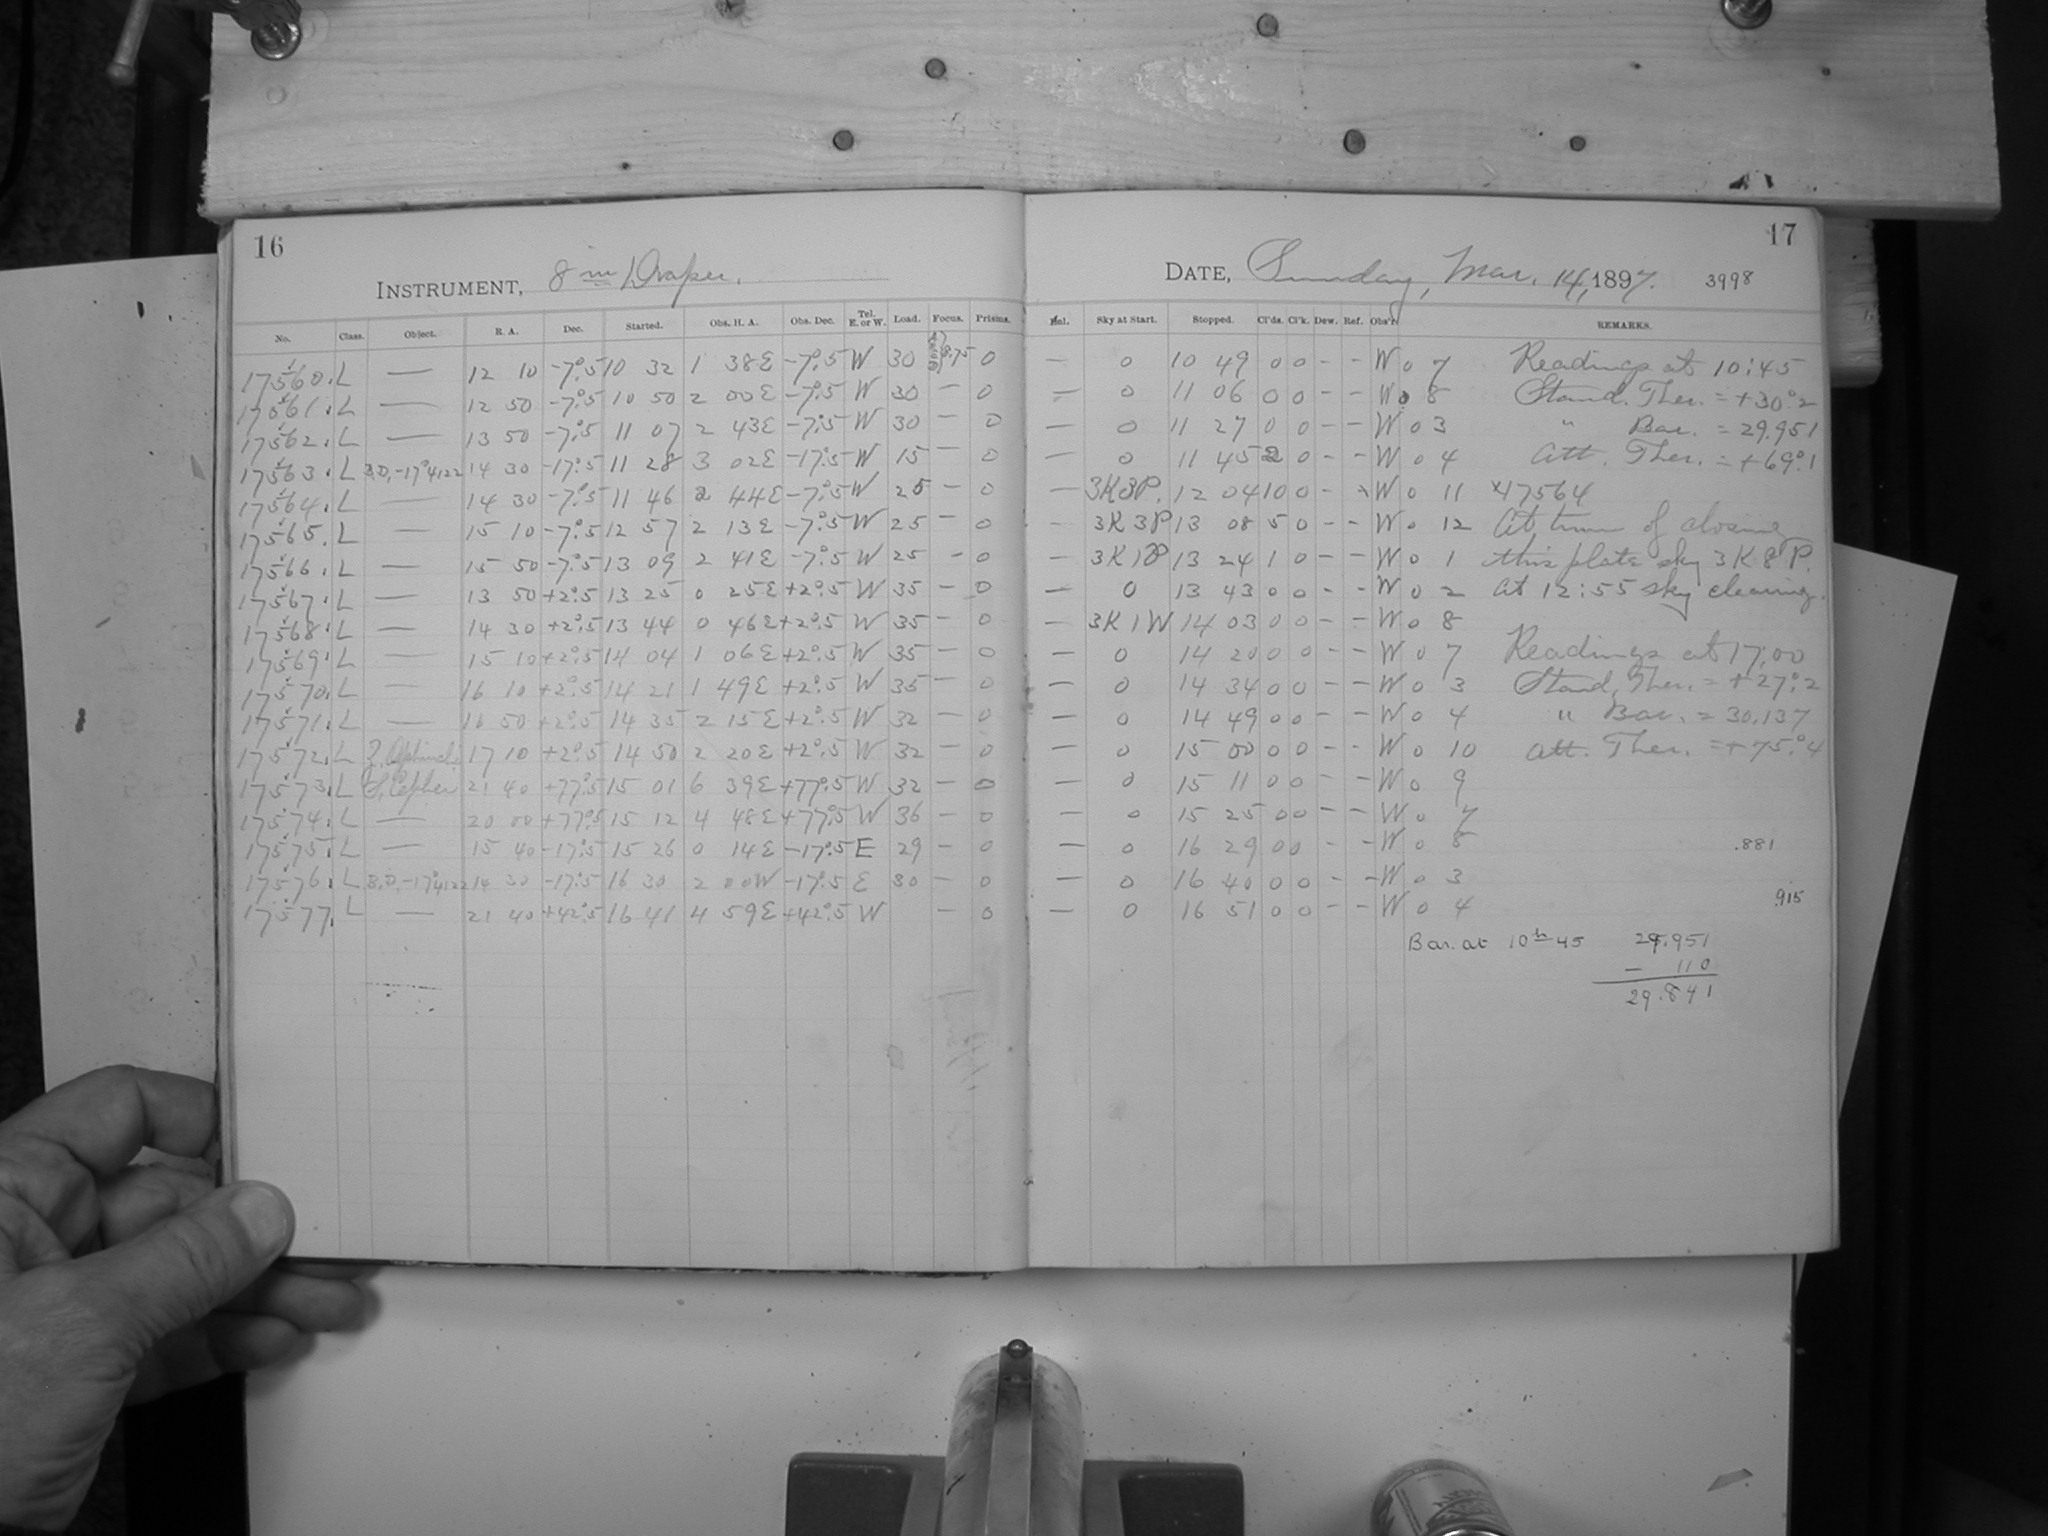 16
INSTRUMENT, 8 in Draper.
No. Class. Object. R. A. Dec. Started. Obs. H. A. Obs. Dec. Tel. E. or W. Load. Focus. Prisms.
17560. L — 12 10 -7°.5 10 32 1 38E -7°.5 W 30 8.75 0
17561. L — 12 50 -7°.5 10 50 2 00E -7°.5 W 30 — 0
17562. L — 13 50 -7°.5 11 07 2 43E -7°.5 W 30 — 0
17563. L B.D. -17°4122 14 30 -17°.5 11 28 3 02E -17°.5 W 15 — 0
17564. L — 14 30 -7°.5 11 46 2 44E -7°.5 W 25 — 0
17565. L — 15 10 -7°.5 12 57 2 13E -7°.5 W 25 — 0
17566. L — 15 50 -7°.5 13 09 2 41E -7°.5 W 25 — 0
17567. L — 13 50 +2°.5 13 25 0 25E +2°.5 W 35 — 0
17568. L — 14 30 +2°.5 13 44 0 46E +2°.5 W 35 — 0
17569. L — 15 10 +2°.5 14 04 1 06E +2°.5 W 35 — 0
17570. L — 16 10 +2°.5 14 21 1 49E +2°.5 W 35 — 0
17571. L — 16 50 +2°.5 14 35 2 15E +2°.5 W 32 — 0
17572. L 17 10 +2°.5 14 50 2 20E +2°.5 W 32 — 0
17573. L Cephei 21 40 +77°.5 15 01 6 39E +77°.5 W 32 — 0
17574. L — 20 00 +77°.5 15 12 4 48E +77°.5 W 36 — 0
17575. L — 15 40 -17°.5 15 26 0 14E -17°.5 E 29 — 0
17576. L B.D. -17°4122 14 30 -17°.5 16 30 2 00W -17°.5 E 30 — 0
17577. L — 21 40 +42°.5 16 41 4 59E +42°.5 W — 0
17
DATE, Sunday, Mar. 14, 1897. 3998
Hol. Sky at Start. Stopped. Cl'ds. Cl'k. Dew. Ref. Obs'r. REMARKS.
— 0 10 49 0 0 - - W o 7 Readings at 10:45
— 0 11 06 0 0 - - W o 8 Stand. Ther. = +30°.2
— 0 11 27 0 0 - - W o 3 " Bar. = 29.951
— 0 11 45 2 0 - - W o 4 Att. Ther. = +69°.1
— 3K3P. 12 04 10 0 - x W o 11 x17564
— 3K3P 13 08 5 0 - - W o 12 At time of closing
— 3K1P 13 24 1 0 - - W o 1 this plate sky 3K8P.
— 0 13 43 0 0 - - W o 2 At 12:55 sky clearing.
— 3K1W 14 03 0 0 - - W o 8
— 0 14 20 0 0 - - W o 7 Readings at 17:00
— 0 14 34 0 0 - - W o 3 Stand. Ther. = +27°.2
— 0 14 49 0 0 - - W o 4 " Bar. = 30.137
— 0 15 00 0 0 - - W o 10 Att. Ther. = +75°.4
— 0 15 11 0 0 - - W o 9
— 0 15 25 0 0 - - W o 7
— 0 16 29 0 0 - - W o 8 .881
— 0 16 40 0 0 - - W o 3
— 0 16 51 0 0 - - W o 4 915
Bar. at 10h 45 29.951
- 110
29.841